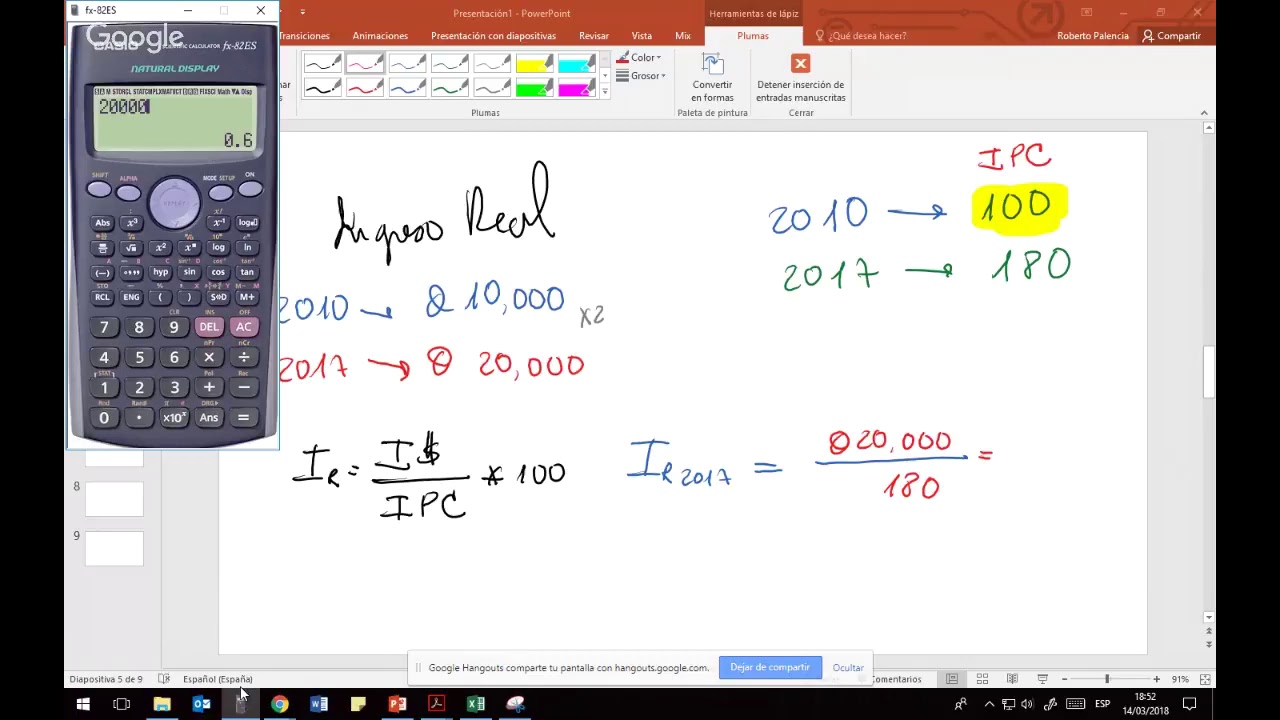 fx-82ES
Google
fx-82ES
NATURAL DISPLAY
20000
0.6
SHIFT ALPHA MODE SETUP ON
REPLAY
Abs x³ x⁻¹
x² log ln
(−) hyp sin cos tan
RCL ENG ( ) S⇔D M+
7 8 9 DEL AC
4 5 6 × ÷
1 2 3 + −
0 . ×10ˣ Ans =
Presentación1 - PowerPoint
Herramientas de lápiz
Transiciones Animaciones Presentación con diapositivas Revisar Vista Mix Plumas ¿Qué desea hacer? Roberto Palencia Compartir
Color
Grosor
Convertir en formas
Detener inserción de entradas manuscritas
Plumas Paleta de pintura Cerrar
IPC
2010 → 100
2017 → 180
Ingreso Real
2010 → Q 10,000
x2
2017 → Q 20,000
I R = I$ / IPC * 100
I R 2017 = Q20,000 / 180 =
8
9
Google Hangouts comparte tu pantalla con hangouts.google.com. Dejar de compartir Ocultar
Diapositiva 5 de 9 Español (España) Comentarios 91%
ESP
18:52
14/03/2018